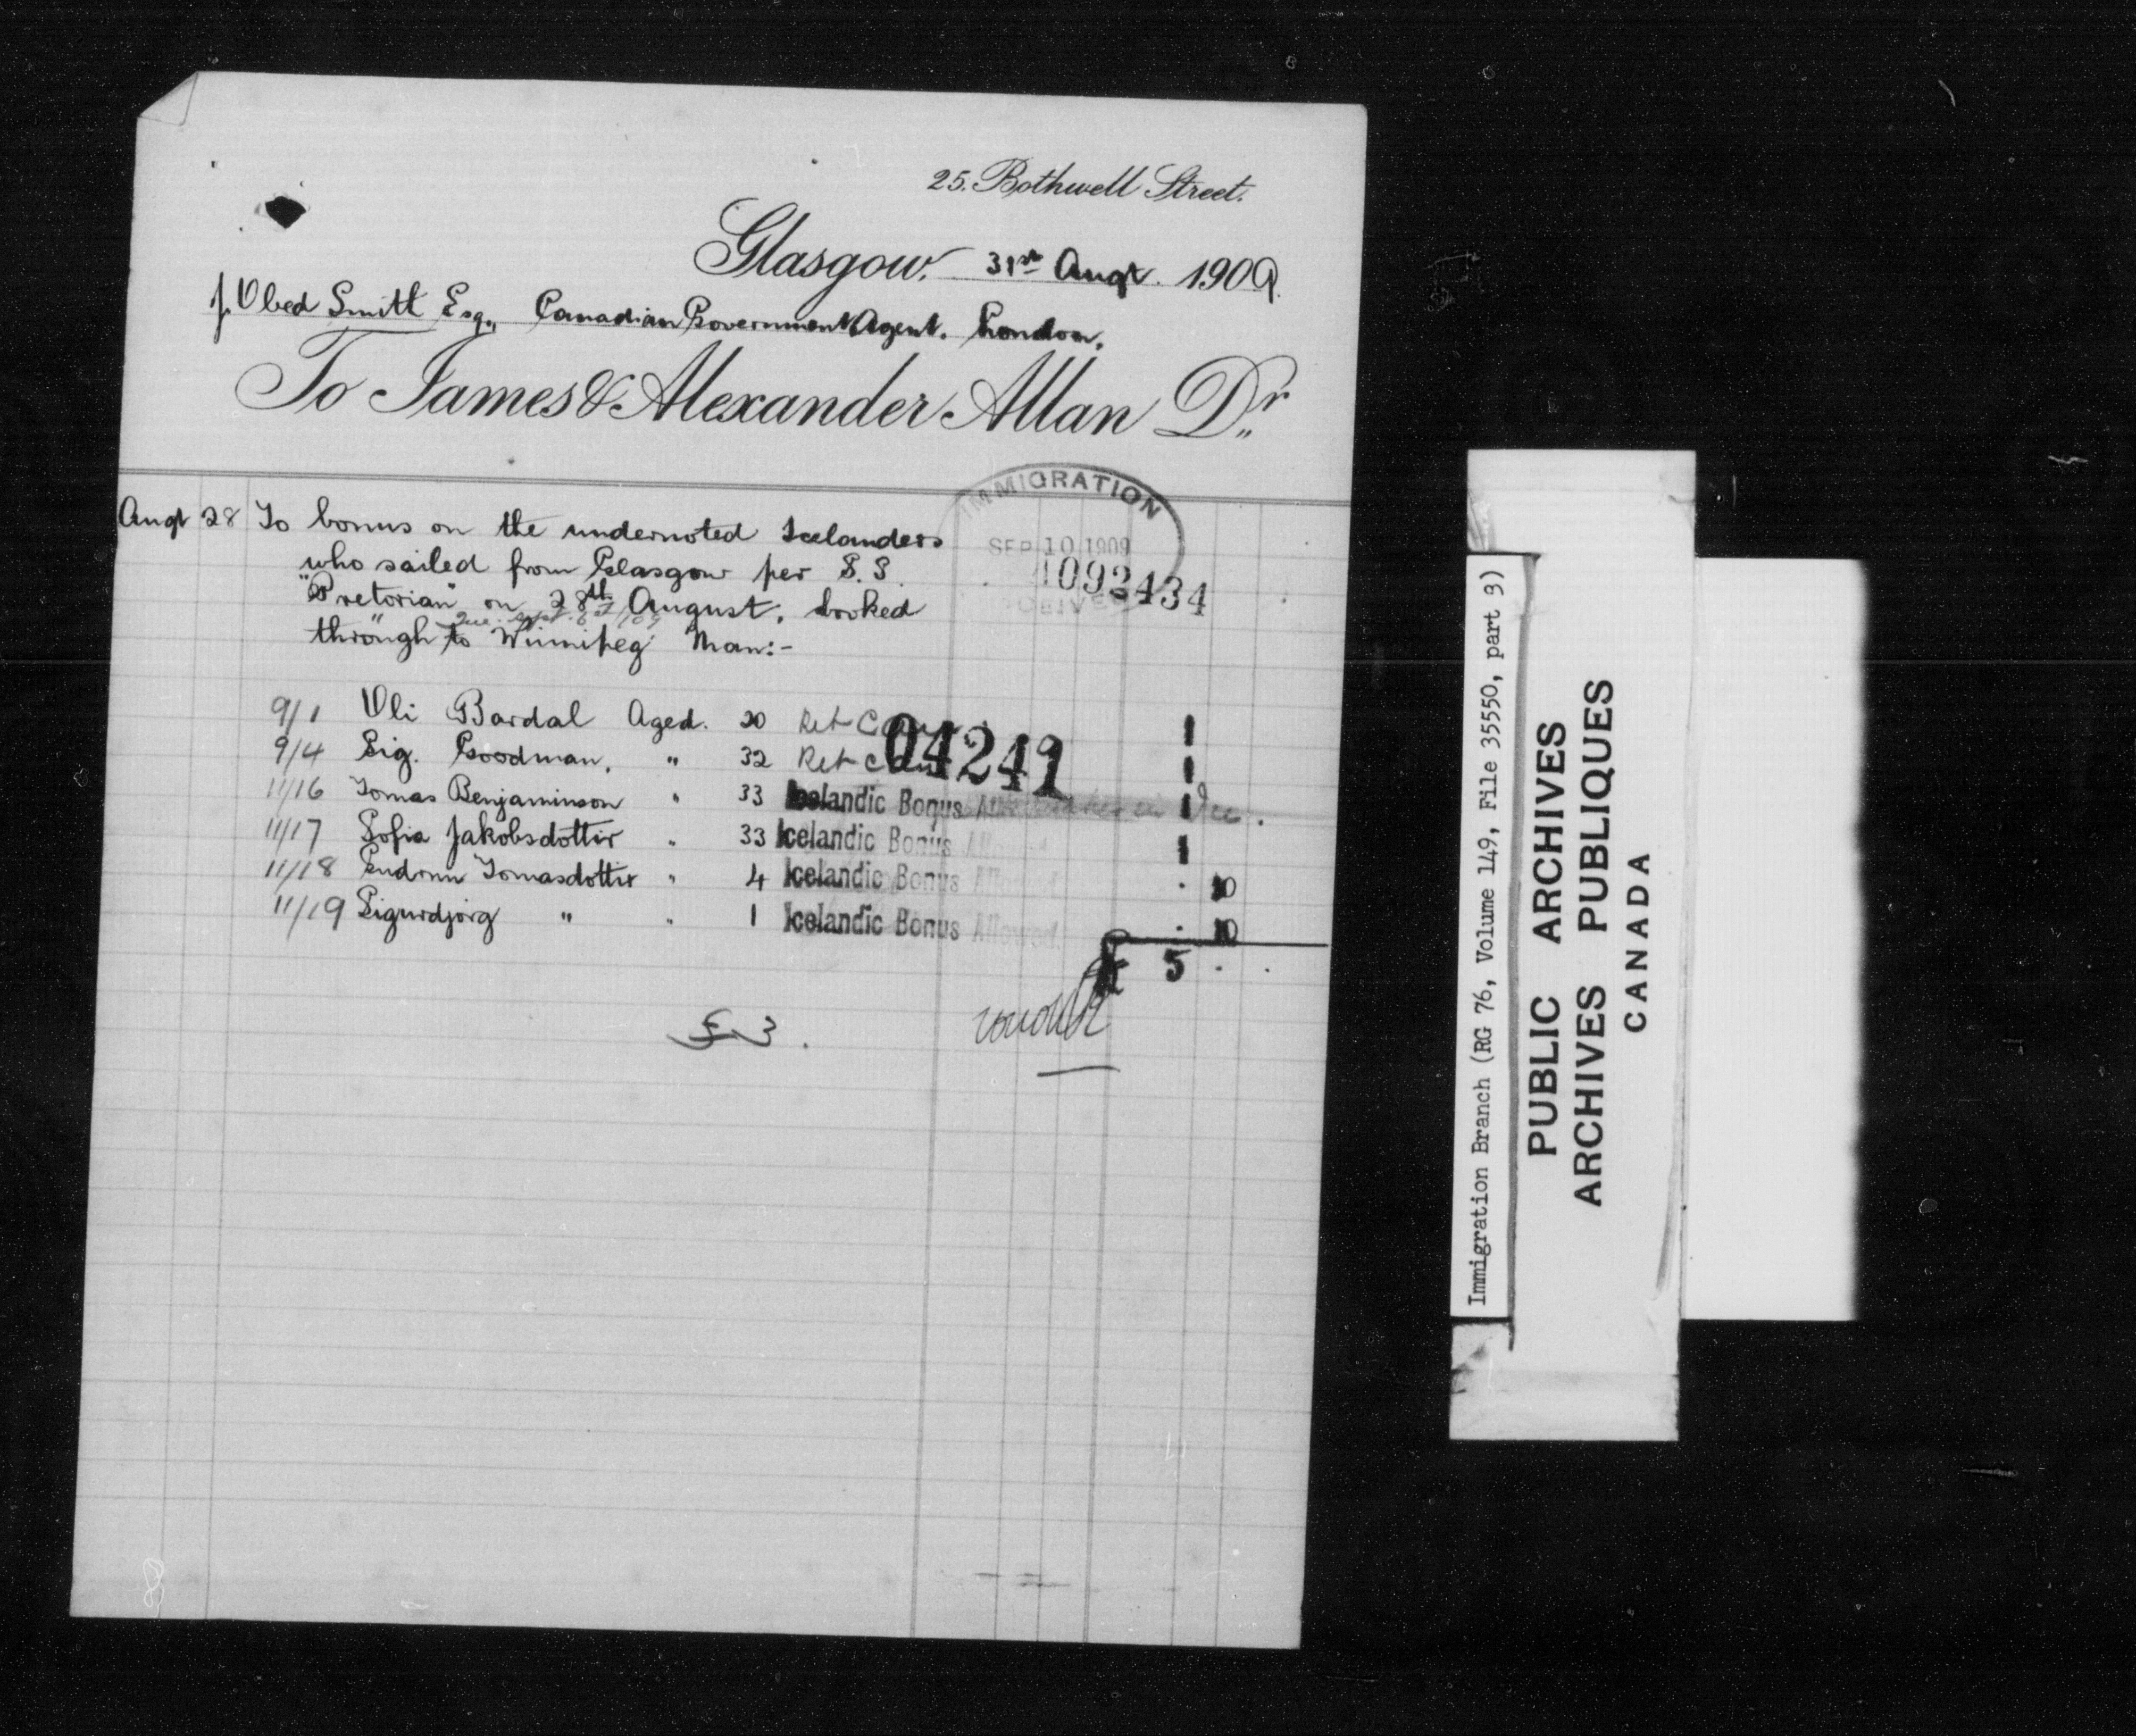 25. Bothwell Street.
Glasgow, 31st Augt. 1909
J. Obed Smith Esq., Canadian Government Agent. London.
To James & Alexander Allan Dr.
IMMIGRATION
SEP 10 1909
1092434
Augt 28 To bonus on the undernoted Icelanders
who sailed from Glasgow per S.S.
"Pretorian" on 28th August, booked
through to Winnipeg Man:-
9/1 Oli Bardal Aged. 20 Ret Can 1
04241
9/4 Sig. Goodman, " 32 Ret Can 1
11/16 Tomas Benjaminson " 33 Icelandic Bonus 1
11/17 Sofia Jakobsdottir " 33 Icelandic Bonus Allowed 1
11/18 Gudrun Tomasdottir " 4 Icelandic Bonus Allowed . 10
11/19 Sigurdjorg " " 1 Icelandic Bonus Allowed. . 10
£ 5 . .
£3.
Immigration Branch (RG 76, Volume 149, File 35550, part 3)
PUBLIC ARCHIVES
ARCHIVES PUBLIQUES
CANADA